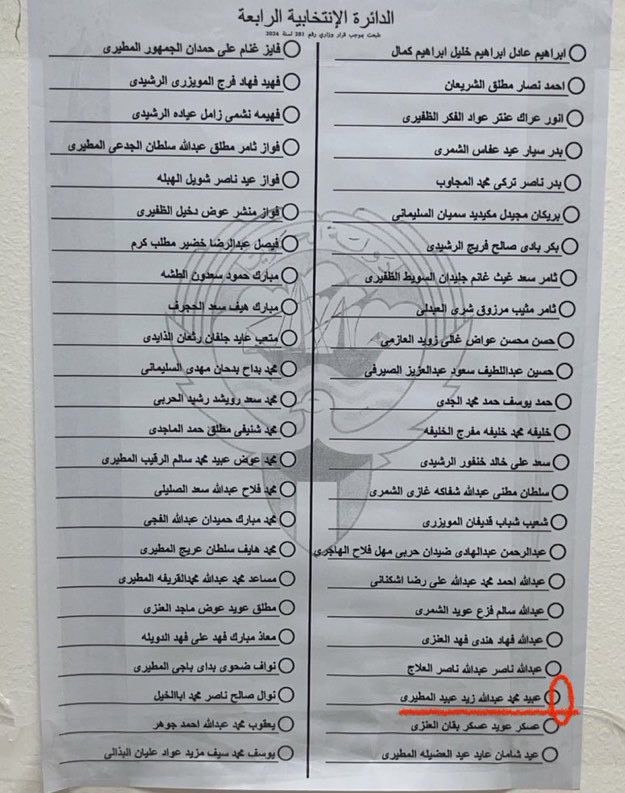 الدائرة الإنتخابية الرابعة
طبعت بموجب قرار وزاري رقم 281 لسنة 2024
ابراهيم عادل ابراهيم خليل ابراهيم كمال
احمد نصار مطلق الشريعان
انور عراك عنتر عواد الفكر الظفيرى
بدر سيار عيد عفاس الشمرى
بدر ناصر تركى محمد المجاوب
بريكان مجيدل مكيديد سميان السليمانى
بكر بادى صالح فريج الرشيدى
ثامر سعد غيث غانم جليدان السويط الظفيرى
ثامر مثيب مرزوق شرى العبدلى
حسن محسن عواض غالى زويد العازمى
حسين عبداللطيف سعود عبدالعزيز الصيرفى
حمد يوسف حمد محمد الجدى
خليفه محمد خليفه مفرج الخليفه
سعد على خالد خنفور الرشيدى
سلطان مطنى عبدالله شفاكه غازى الشمرى
شعيب شباب قديفان المويزرى
عبدالرحمن عبدالهادى ضيدان حربى مهل فلاح الهاجرى
عبدالله احمد محمد عبدالله على رضا اشكنانى
عبدالله سالم فزع عويد الشمرى
عبدالله فهاد هندى فهد العنزى
عبدالله ناصر عبدالله ناصر العلاج
عبيد محمد عبدالله زيد عبيد المطيرى
عسكر عويد عسكر بقان العنزى
عيد شامان عايد عيد العضيله المطيرى
فايز غنام على حمدان الجمهور المطيرى
فهيد فهاد فرج المويزرى الرشيدى
فهيمه نشمى زامل عياده الرشيدى
فواز ثامر مطلق عبدالله سلطان الجدعى المطيرى
فواز عيد ناصر شويل الهبله
فواز منشر عوض دخيل الظفيرى
فيصل عبدالرضا خضير مطلب كرم
مبارك حمود سعدون الطشه
مبارك هيف سعد الحجرف
متعب عايد جلفان رثعان الذايدى
محمد بداح بدحان مهدى السليمانى
محمد سعد رويشد رشيد الحربى
محمد شنيفى مطلق حمد الماجدى
محمد عوض عبيد محمد سالم الرقيب المطيرى
محمد فلاح عبدالله سعد الصليلى
محمد مبارك حميدان عبدالله الفجى
محمد هايف سلطان عريج المطيرى
مساعد محمد عبدالله محمد القريفه المطيرى
مطلق عويد عوض ماجد العنزى
معاذ مبارك فهد على فهد الدويله
نواف ضحوى بداى باجى المطيرى
نوال صالح ناصر محمد اباالخيل
يعقوب محمد عبدالله احمد جوهر
يوسف محمد سيف مزيد عواد عليان البذالى